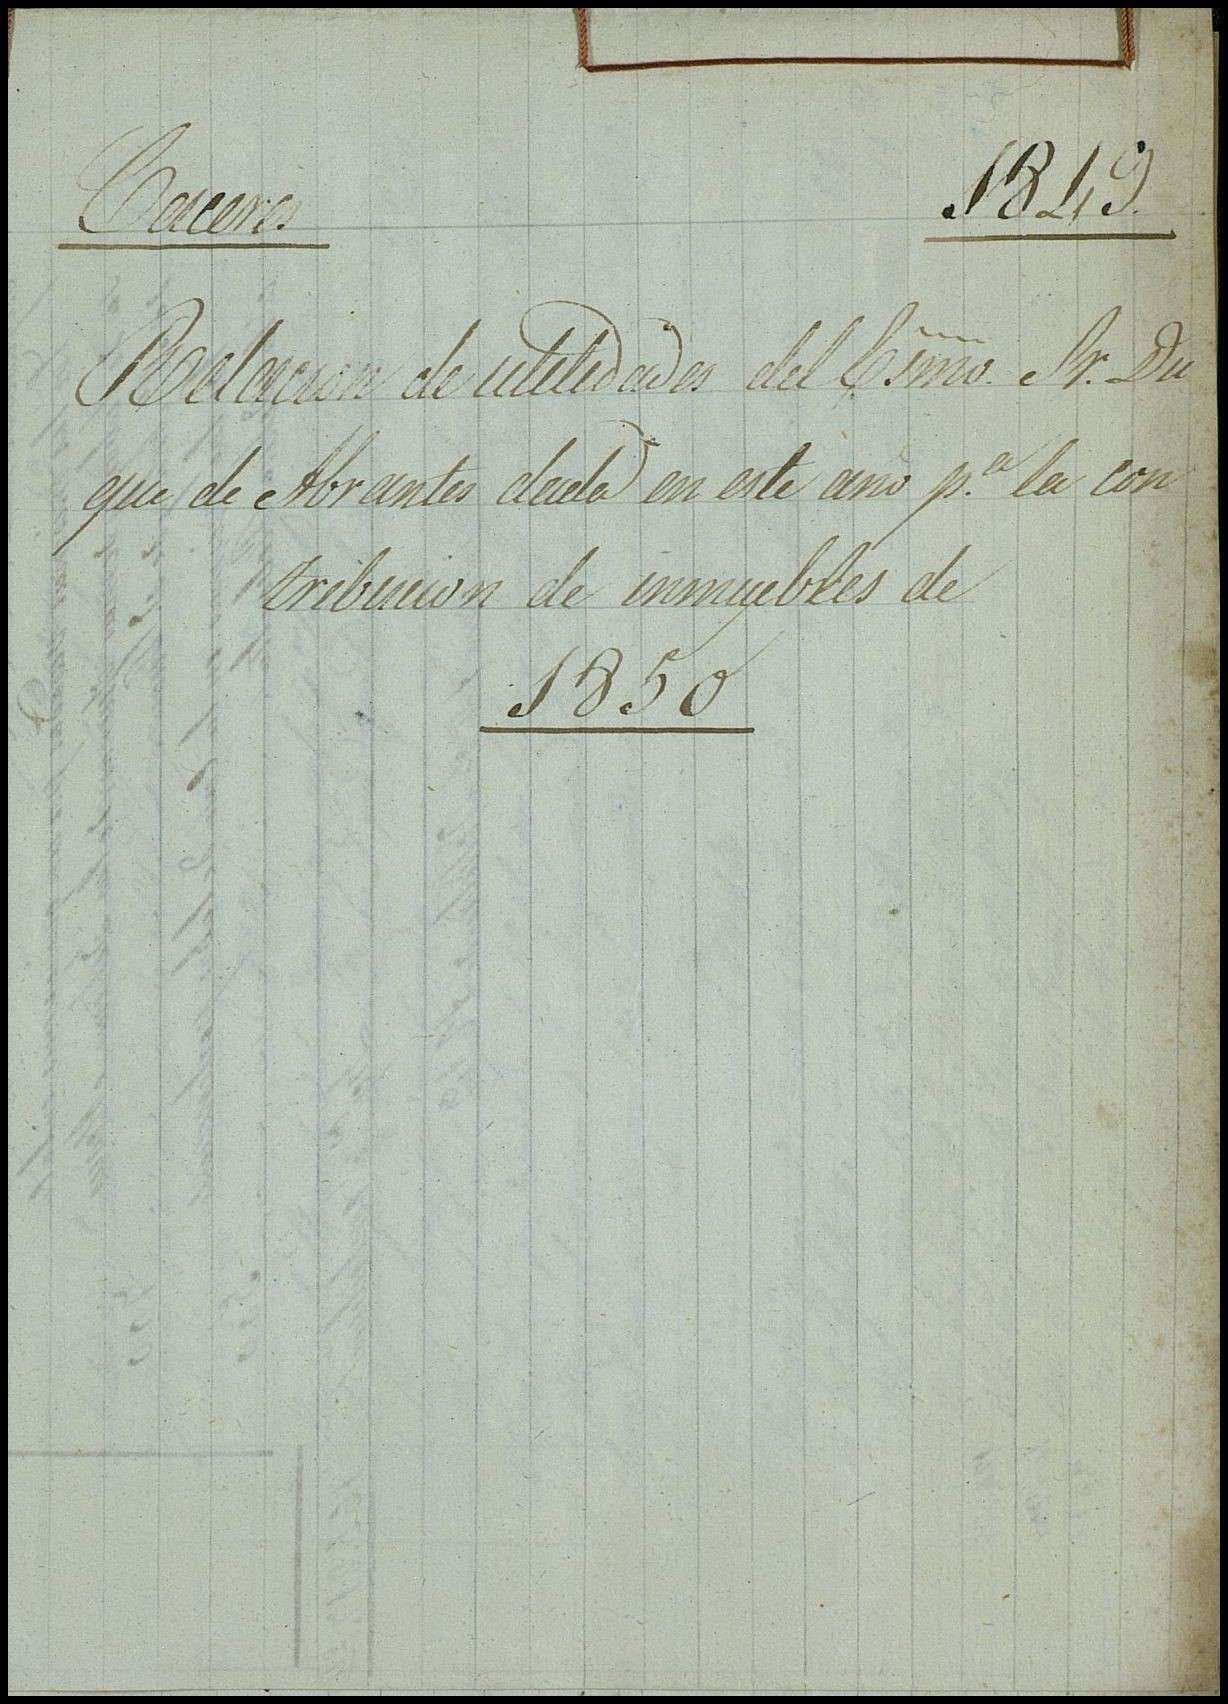 Caceres.
1849.
Relacion de utilidades del Esmo. Sr. Du
que de Abrantes dada en este año p.ª la con
tribucion de inmuebles de
1850